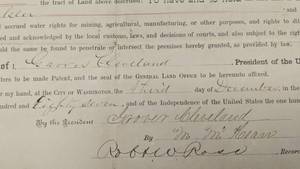 the tract of Land above described: To have and to hold
accrued water rights for mining, agricultural, manufacturing, or other purposes, and rights to di
ed and acknowledged by the local customs, laws, and decisions of courts, and also subject to the right
uld the same be found to penetrate or intersect the premises hereby granted, as provided by law.
Grover Cleveland, President of the U
ters to be made Patent, and the seal of the GENERAL LAND OFFICE to be hereunto affixed.
r my hand, at the CITY OF WASHINGTON, the Third day of December, in
undred and Eighty seven, and of the Independence of the United States the one hun
By the President Grover Cleveland
By M. McKean
Robt W Ross, Recor